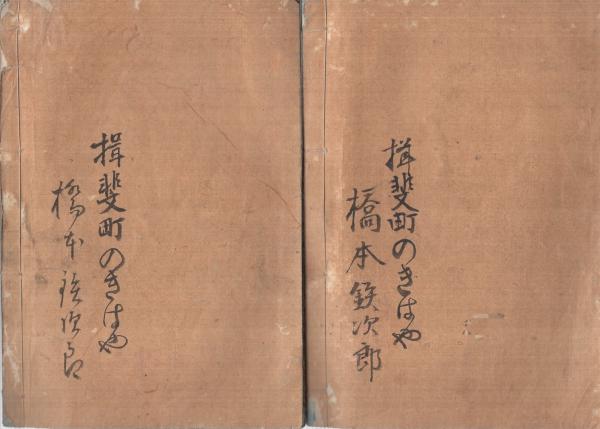 揖斐町のきはや
橋本鉄次郎
揖斐町のきはや
橋本鉄次郎